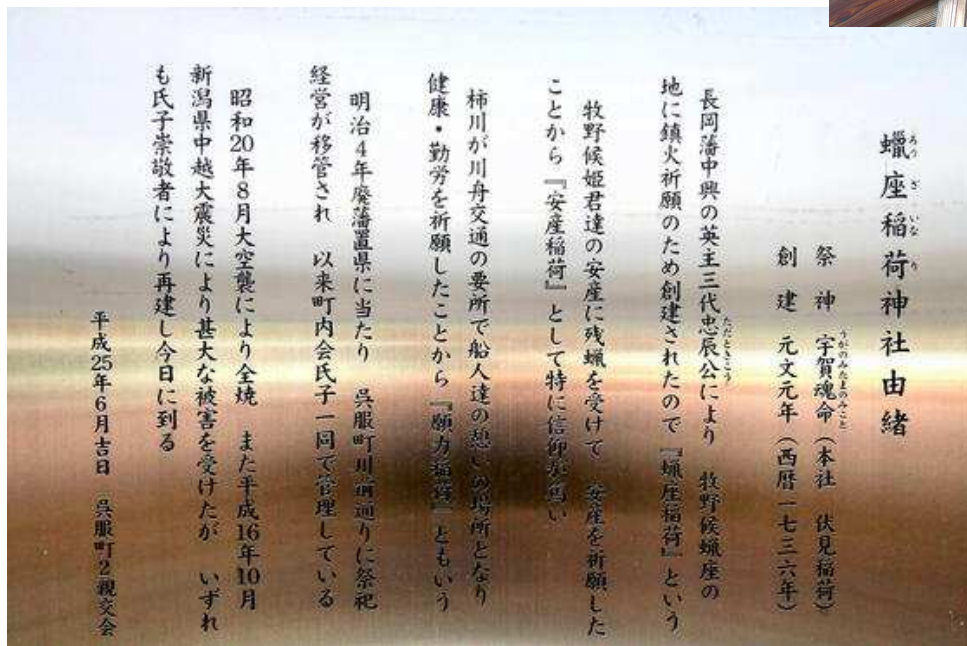 蠟座稲荷神社由緒
ろうざいなり
祭神　宇賀魂命（本社　伏見稲荷）
うがのみたまのみこと
創建　元文元年（西暦一七三六年）
長岡藩中興の英主三代忠辰公により　牧野候蠟座の
ただときこう
地に鎮火祈願のため創建されたので『蠟座稲荷』という
牧野候姫君達の安産に残蠟を受けて　安産を祈願した
ことから『安産稲荷』として特に信仰が篤い
柿川が川舟交通の要所で船人達の憩いの場所となり
健康・勤労を祈願したことから『願力稲荷』ともいう
明治4年廃藩置県に当たり　呉服町川前通りに祭祀
経営が移管され　以来町内会氏子一同で管理している
昭和20年8月大空襲により全焼　また平成16年10月
新潟県中越大震災により甚大な被害を受けたが　いずれ
も氏子崇敬者により再建し今日に到る
平成25年6月吉日　呉服町2親交会